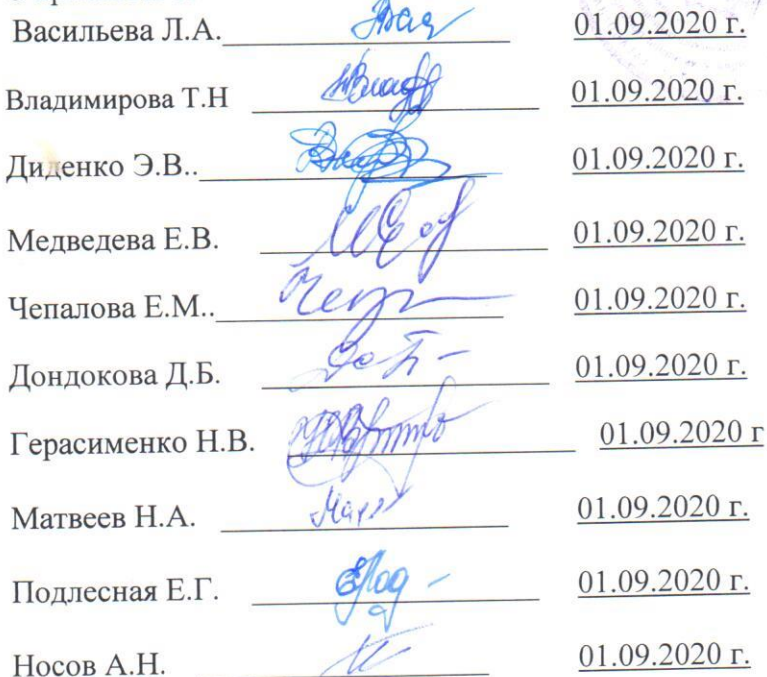 Васильева Л.А. 01.09.2020 г.
Владимирова Т.Н 01.09.2020 г.
Диденко Э.В.. 01.09.2020 г.
Медведева Е.В. 01.09.2020 г.
Чепалова Е.М.. 01.09.2020 г.
Дондокова Д.Б. 01.09.2020 г.
Герасименко Н.В. 01.09.2020 г
Матвеев Н.А. 01.09.2020 г.
Подлесная Е.Г. 01.09.2020 г.
Носов А.Н. 01.09.2020 г.